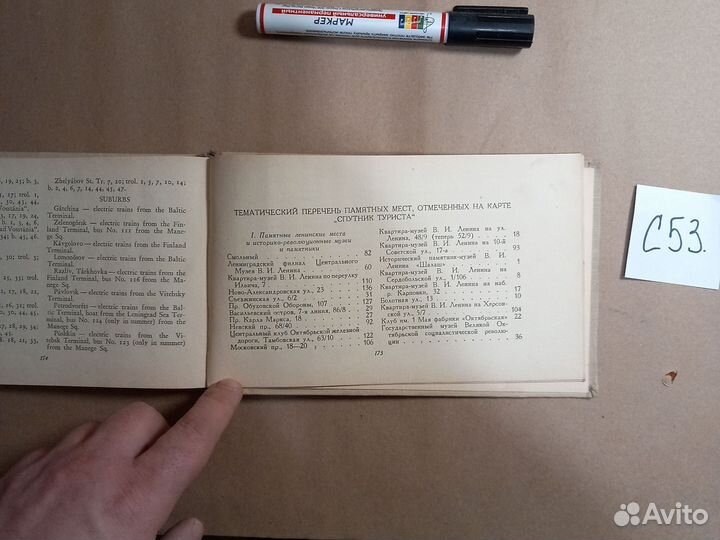 МАРКЕР
УНИВЕРСАЛЬНЫЙ ПЕРМАНЕНТНЫЙ
19, 23; b. 3,
Zhelyábov St. Tr. 7, 20; trol. 1, 5, 7, 10, 14;
b. 2, 4, 6, 7, 14, 44, 45, 47.
SUBURBS
Gátchina — electric trains from the Baltic
Terminal.
Zelenogórsk — electric trains from the Fin-
land Terminal, bus No. 111 from the Mane-
ge Sq.
Kávgolovo — electric trains from the Finland
Terminal.
Lomonósov — electric trains from the Baltic
Terminal.
Razlív, Tárkhovka — electric trains from the
Finland Terminal, bus No. 126 from the Ma-
nege Sq.
Pávlovsk — electric trains from the Vítebsky
Terminal.
Petrodvoréts — electric trains from the Bal-
tic Terminal, boat from the Leningrad Sea Ter-
minal, bus No. (only in summer)
from the Manege Sq.
Púshkin — electric trains from the Vi-
tebsk Terminal, bus No. (only in summer)
from the Manege Sq.
174
ТЕМАТИЧЕСКИЙ ПЕРЕЧЕНЬ ПАМЯТНЫХ МЕСТ, ОТМЕЧЕННЫХ НА КАРТЕ
"СПУТНИК ТУРИСТА"
1. Памятные ленинские места
и историко-революционные музеи
и памятники
Смольный 82
Ленинградский филиал Центрального
Музея В. И. Ленина 60
Квартира-музей В. И. Ленина по переулку
Ильича, 7 110
Ново-Александровская ул., 23 136
Съезжинская ул., 6/2 31
Пр. Обуховской Обороны, 107 137
Васильевский остров, 7-я линия, 86/8 29
Пр. Карла Маркса, 18 22
Невский пр., 68/40 92
Центральный клуб Октябрьской железной
дороги, Тамбовская ул., 63/10 122
Московский пр., 18—20 106
Квартира-музей В. И. Ленина на ул.
Ленина, 48/9 (теперь 52/9) 18
Квартира-музей В. И. Ленина на 10-й
Советской ул., 17-а 93
Исторический памятник-музей В. И.
Ленина «Шалаш» 1
Квартира-музей В. И. Ленина на
Сердобольской ул., 1/106 8
Квартира-музей В. И. Ленина на наб.
р. Карповки, 32 17
Болотная ул., 13 10
Квартира-музей В. И. Ленина на Херсон-
ской ул., 5/7 104
Клуб им. 1 Мая фабрики «Октябрьская» 22
Государственный музей Великой Ок-
тябрьской социалистической револю-
ции 36
175
С53.
Avito